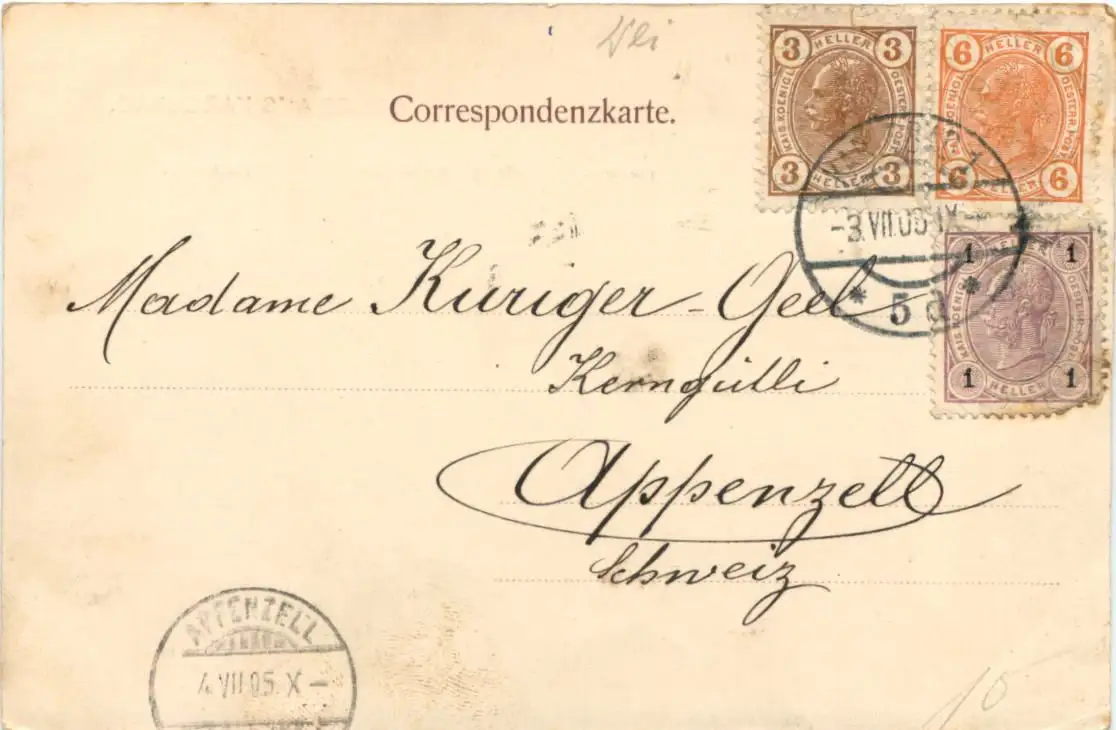 Correspondenzkarte.
3 HELLER 3
KAIS. KOENIGL. OESTERR. POST
3 HELLER 3
6 HELLER 6
KAIS. KOENIGL. OESTERR. POST
6 HELLER 6
-3.VII.05 IX-
* 5 d *
1 HELLER 1
KAIS. KOENIGL. OESTERR. POST
1 HELLER 1
Madame Kuriger-Geel
Kerngülli
Appenzell
Schweiz
APPENZELL
4.VII.05. X-